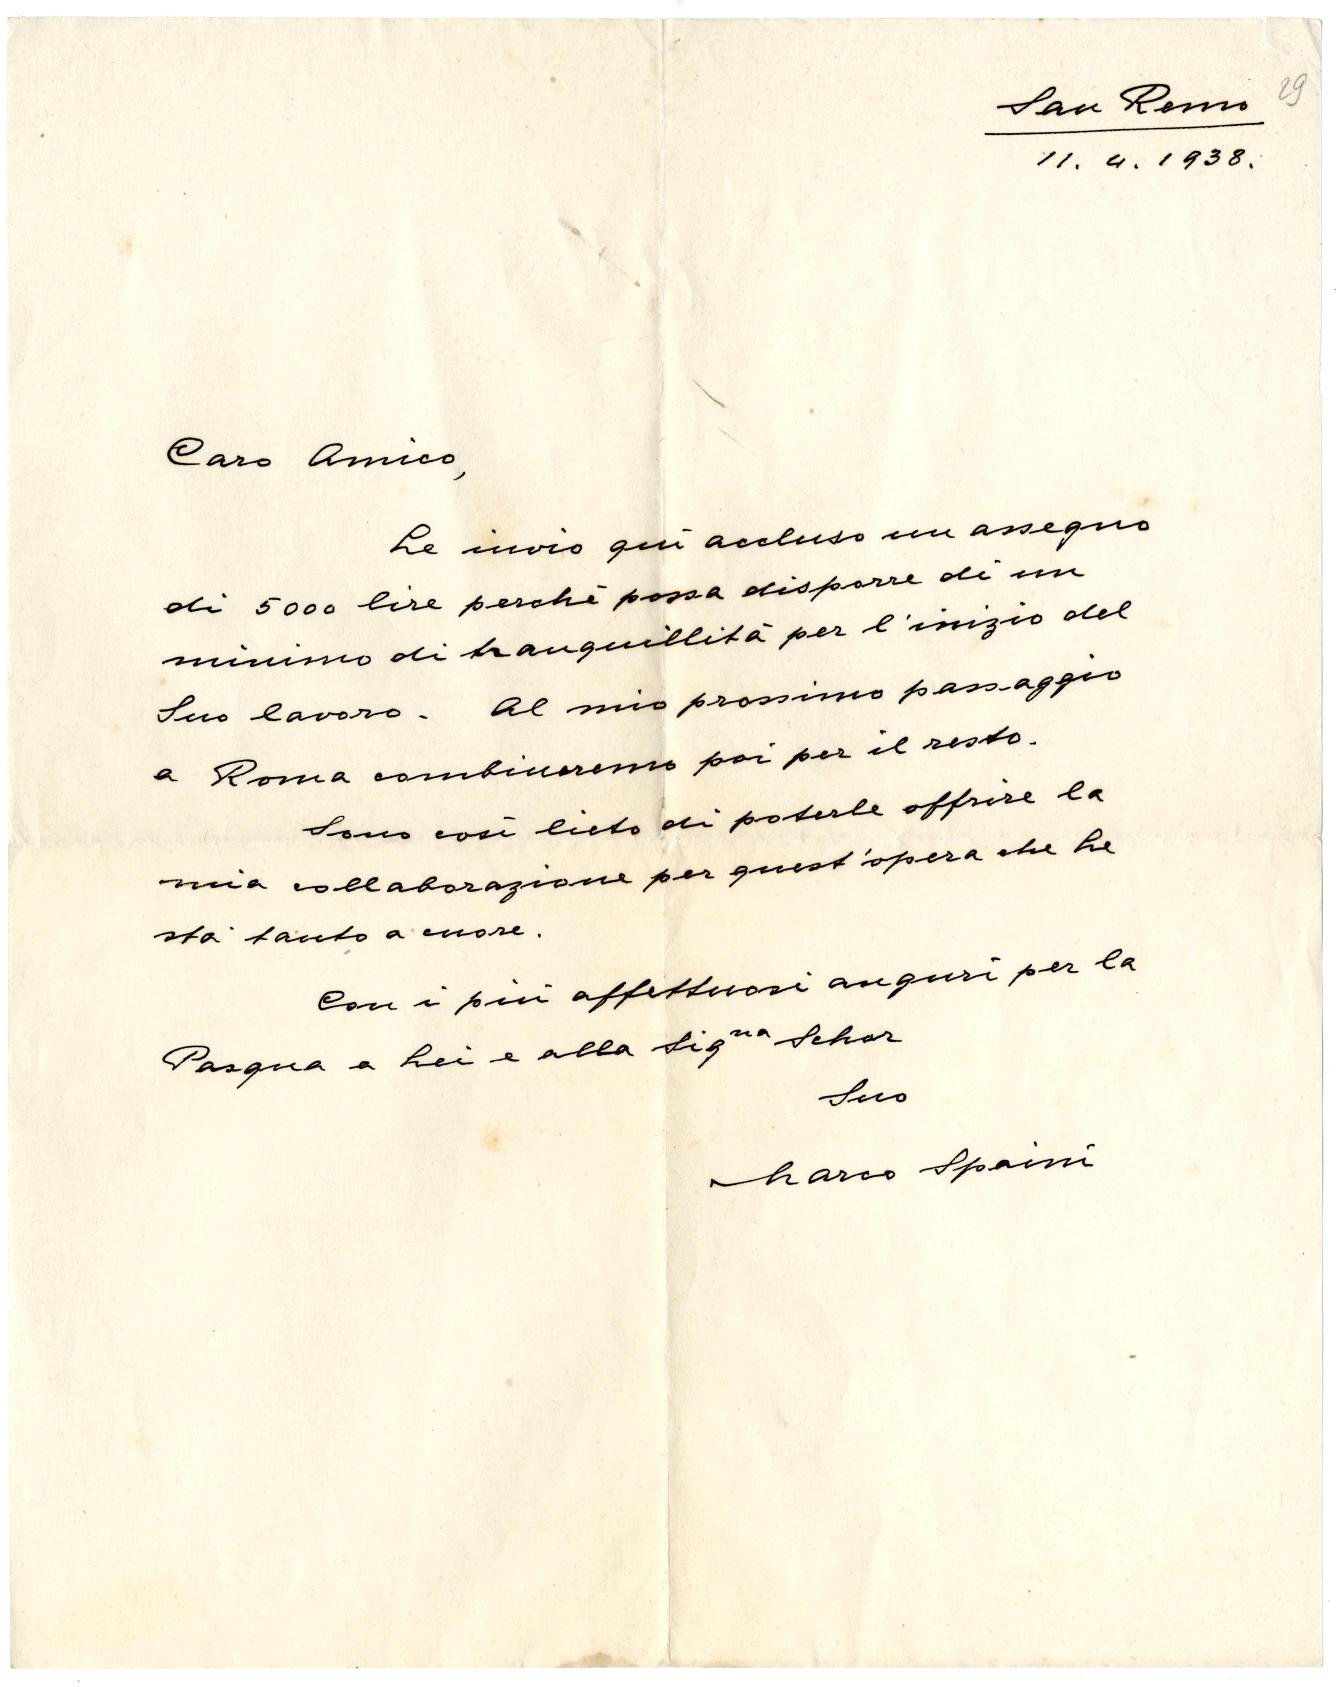 San Remo 29
11. 4. 1938.
Caro Amico,
Le invio quì accluso un assegno
di 5000 lire perchè possa disporre di un
minimo di tranquillità per l'inizio del
Suo lavoro. Al mio prossimo passaggio
a Roma combineremo poi per il resto.
Sono così lieto di poterle offrire la
mia collaborazione per quest'opera che Le
sta' tanto a cuore.
Con i più affettuosi auguri per la
Pasqua a Lei e alla Sigⁿᵃ Schor
Suo
Marco Spaini